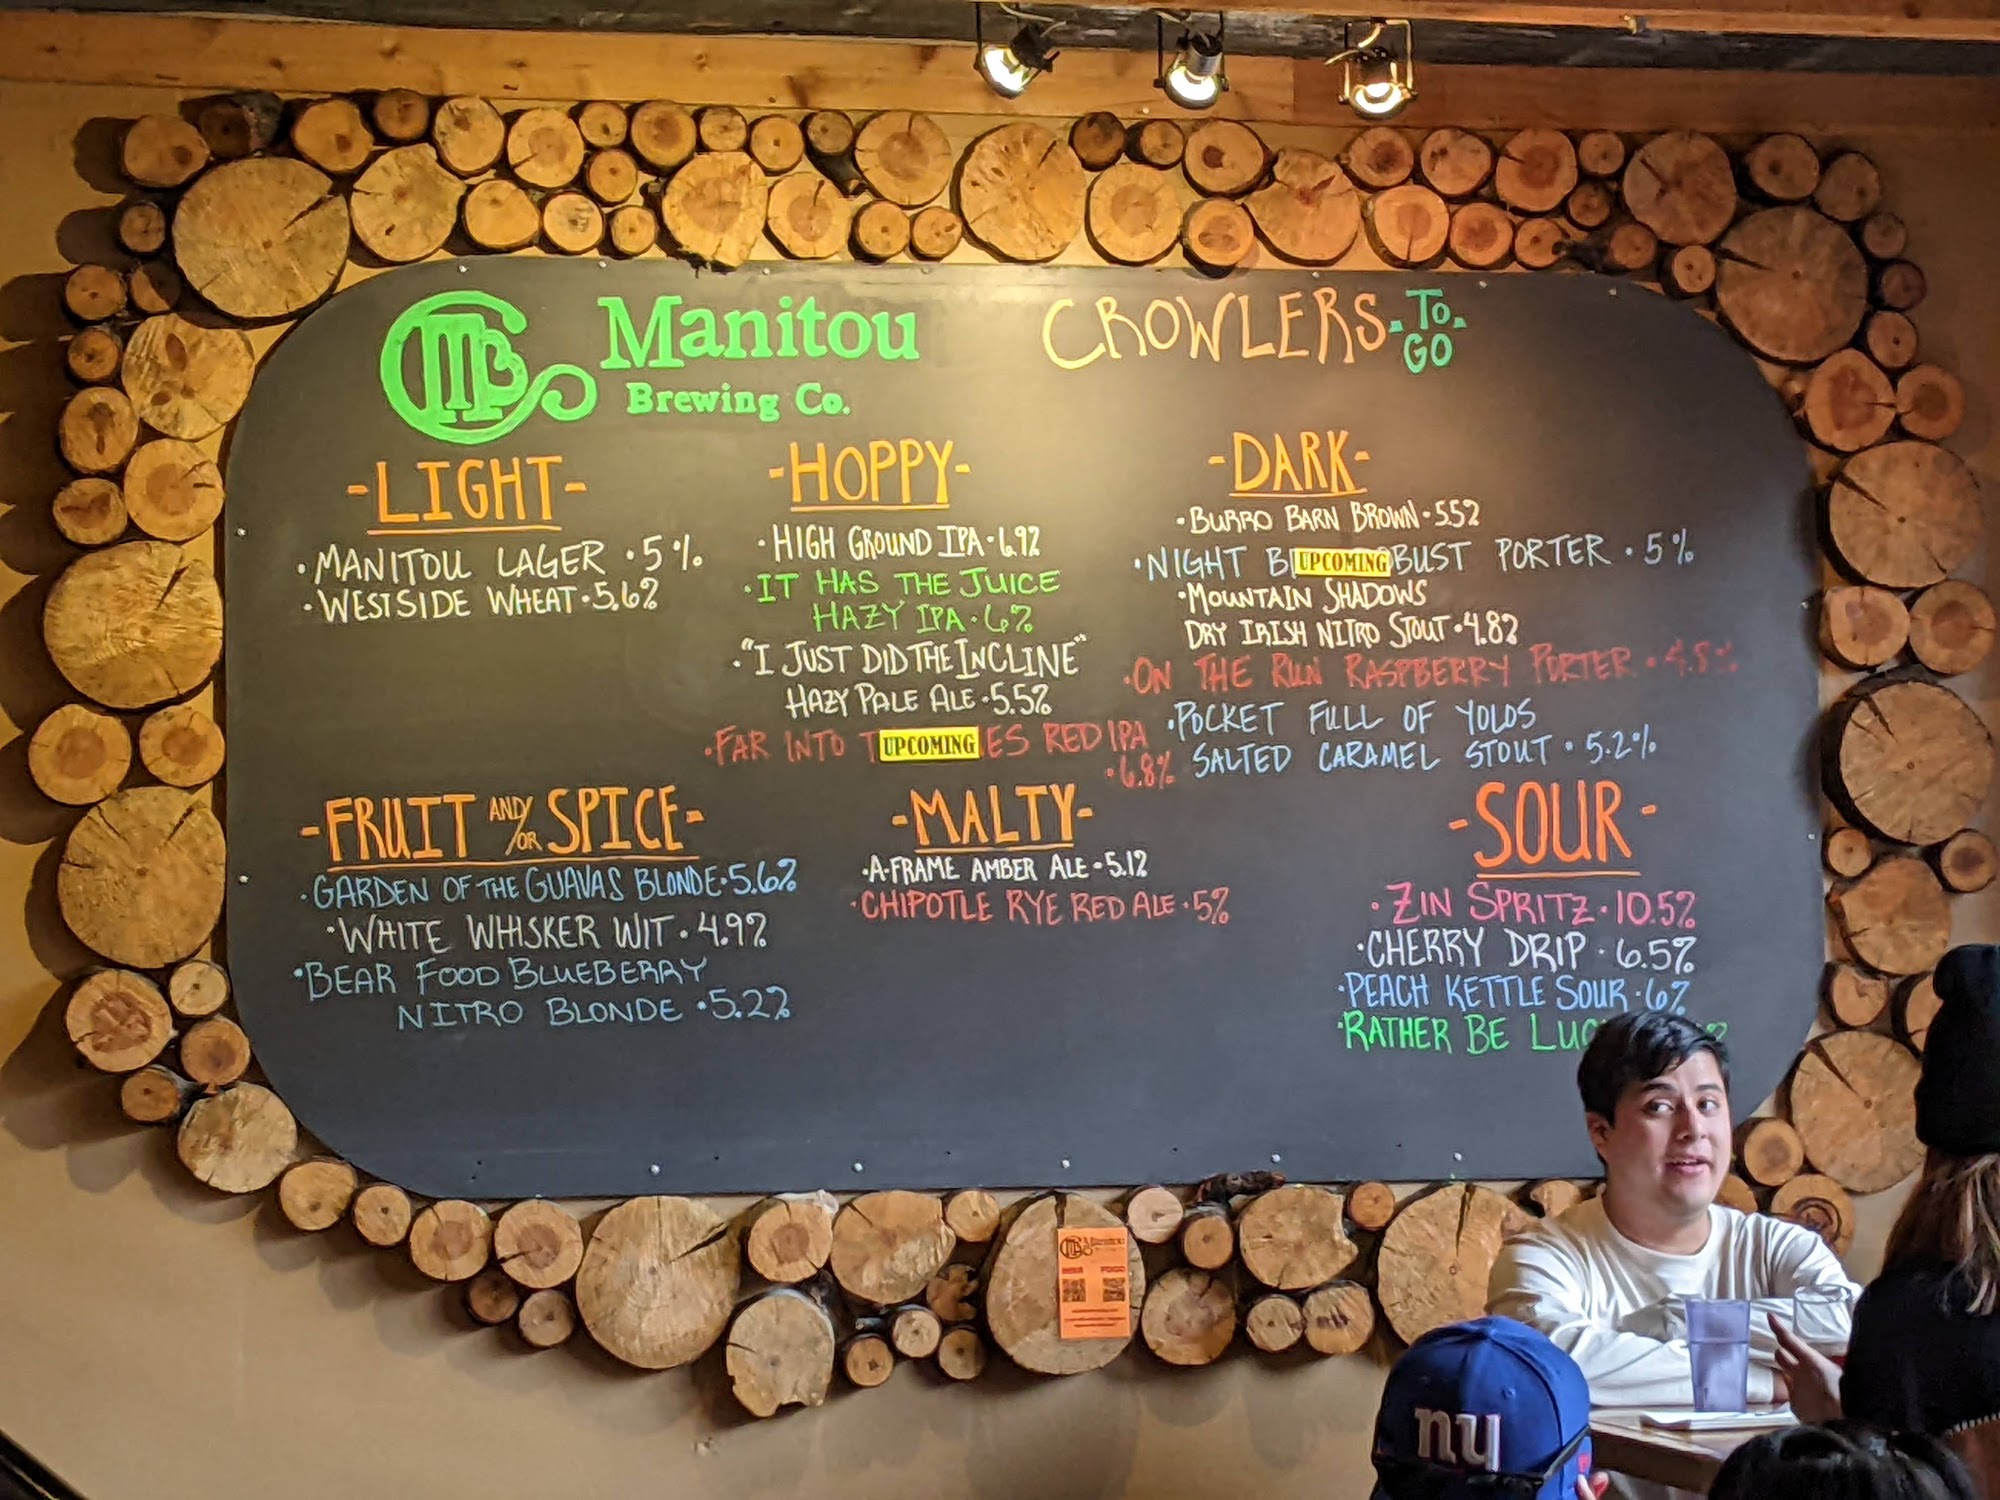 Manitou
Brewing Co.
CROWLERS · TO · GO
- LIGHT -
· MANITOU LAGER · 5%
· WESTSIDE WHEAT · 5.6%
- HOPPY -
· HIGH GROUND IPA · 6.9%
· IT HAS THE JUICE
HAZY IPA · 6%
· "I JUST DID THE INCLINE"
HAZY PALE ALE · 5.5%
· FAR INTO UPCOMING RED IPA
· 6.8%
- DARK -
· BURRO BARN BROWN · 5.5%
· NIGHT UPCOMING PORTER · 5%
· MOUNTAIN SHADOWS
DRY IRISH NITRO STOUT · 4.8%
· ON THE RUN RASPBERRY PORTER · 4.8%
· POCKET FULL OF YOLOS
SALTED CARAMEL STOUT · 5.2%
- FRUIT AND/OR SPICE -
· GARDEN OF THE GUAVAS BLONDE · 5.6%
· WHITE WHISKER WIT · 4.9%
· BEAR FOOD BLUEBERRY
NITRO BLONDE · 5.2%
- MALTY -
· A-FRAME AMBER ALE · 5.1%
· CHIPOTLE RYE RED ALE · 5%
- SOUR -
· ZIN SPRITZ · 10.5%
· CHERRY DRIP · 6.5%
· PEACH KETTLE SOUR · 6%
· RATHER BE
Manitou
FOOD
ny